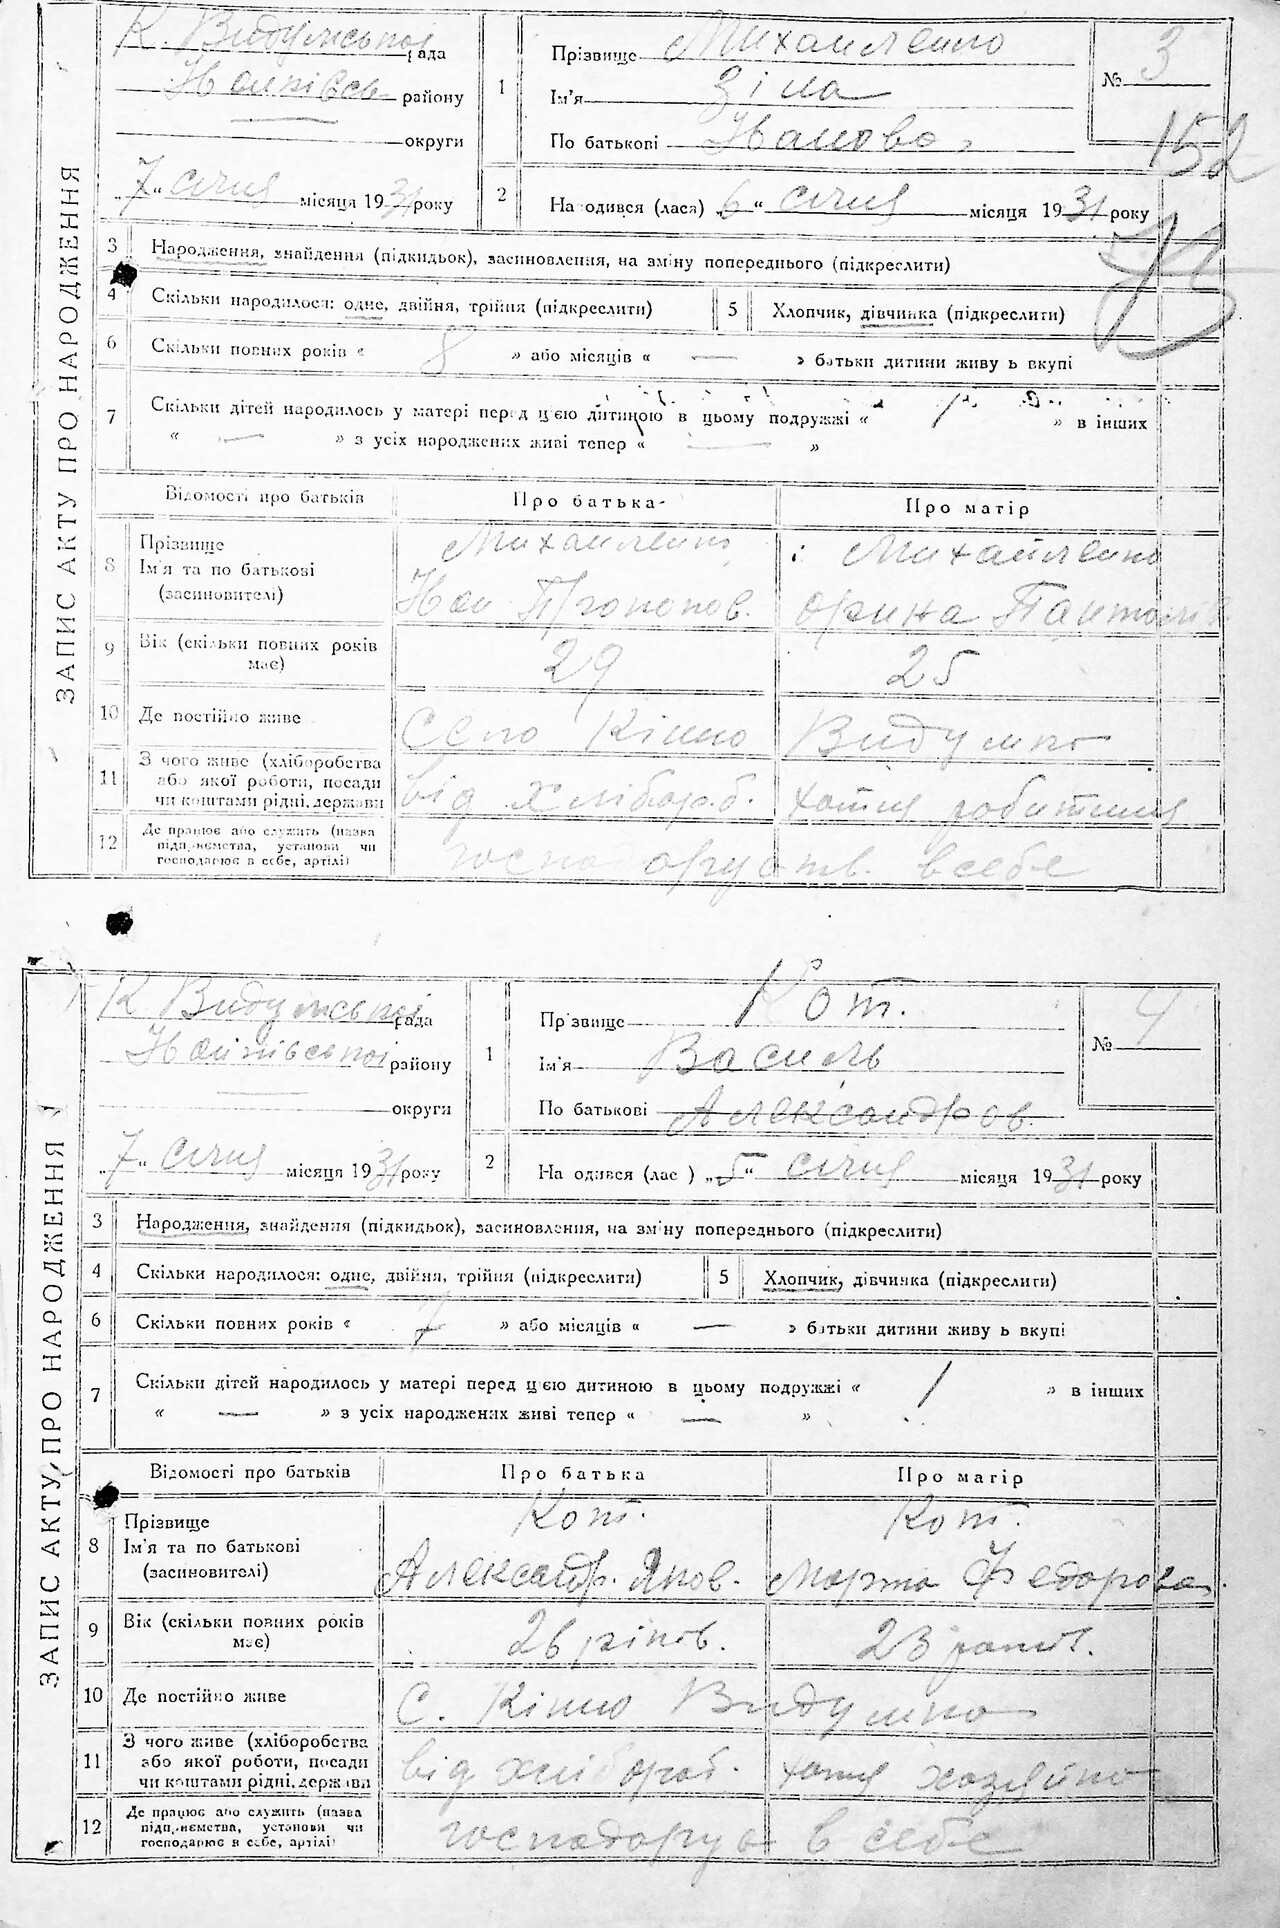 ЗАПИС АКТУ ПРО НАРОДЖЕННЯ
К. Видумської рада
району
округи
„7“ січня місяця 1931 року
1
Прізвище Михайленко
Ім'я Зіна
По батькові Іванова
№ 3
152
2 На одився (лася) „6“ січня місяця 1931 року
3 Народження, знайдення (підкидьок), засиновлення, на зміну попереднього (підкреслити)
4 Скільки народилося: одне, двійня, трійня (підкреслити) 5 Хлопчик, дівчинка (підкреслити)
6 Скільки повних років « 8 » або місяців « — » батьки дитини живу ь вкупі
7 Скільки дітей народилось у матері перед цією дитиною в цьому подружжі « 1 » в інших
« — » з усіх народжених живі тепер « — »
Відомості про батьків Про батька Про матір
8 Прізвище Михайленко Михайленко
Ім'я та по батькові
(засиновителі) Іван Прокопов. Орина
9 Вік (скільки повних років має) 29 25
10 Де постійно живе Село Кінно Видумка
11 З чого живе (хліборобства
або якої роботи, посади
чи коштами рідні, держави від хлібороб. хатня робитниця
12 Де працює або служить (назва
підприємства, установи чи
господарює в себе, артілі) в себе
ЗАПИС АКТУ ПРО НАРОДЖЕННЯ
К Видумської рада
району
округи
„7“ січня місяця 1931 року
1
Прізвище Кот.
Ім'я Василь
По батькові Александров.
№ 4
2 На одився (лас ) „5“ січня місяця 1931 року
3 Народження, знайдення (підкидьок), засиновлення, на зміну попереднього (підкреслити)
4 Скільки народилося: одне, двійня, трійня (підкреслити) 5 Хлопчик, дівчинка (підкреслити)
6 Скільки повних років « 7 » або місяців « — » батьки дитини живу ь вкупі
7 Скільки дітей народилось у матері перед цією дитиною в цьому подружжі « 1 » в інших
« — » з усіх народжених живі тепер « — »
Відомості про батьків Про батька Про матір
8 Прізвище Кот. Кот.
Ім'я та по батькові
(засиновителі) Александр. Яков. Марта Федорова.
9 Вік (скільки повних років має) 26 років. 23 років.
10 Де постійно живе С. Кінно Видумка
11 З чого живе (хліборобства
або якої роботи, посади
чи коштами рідні, держави від хлібороб. хатня хазяйка
12 Де працює або служить (назва
підприємства, установи чи
господарює в себе, артілі) в себе